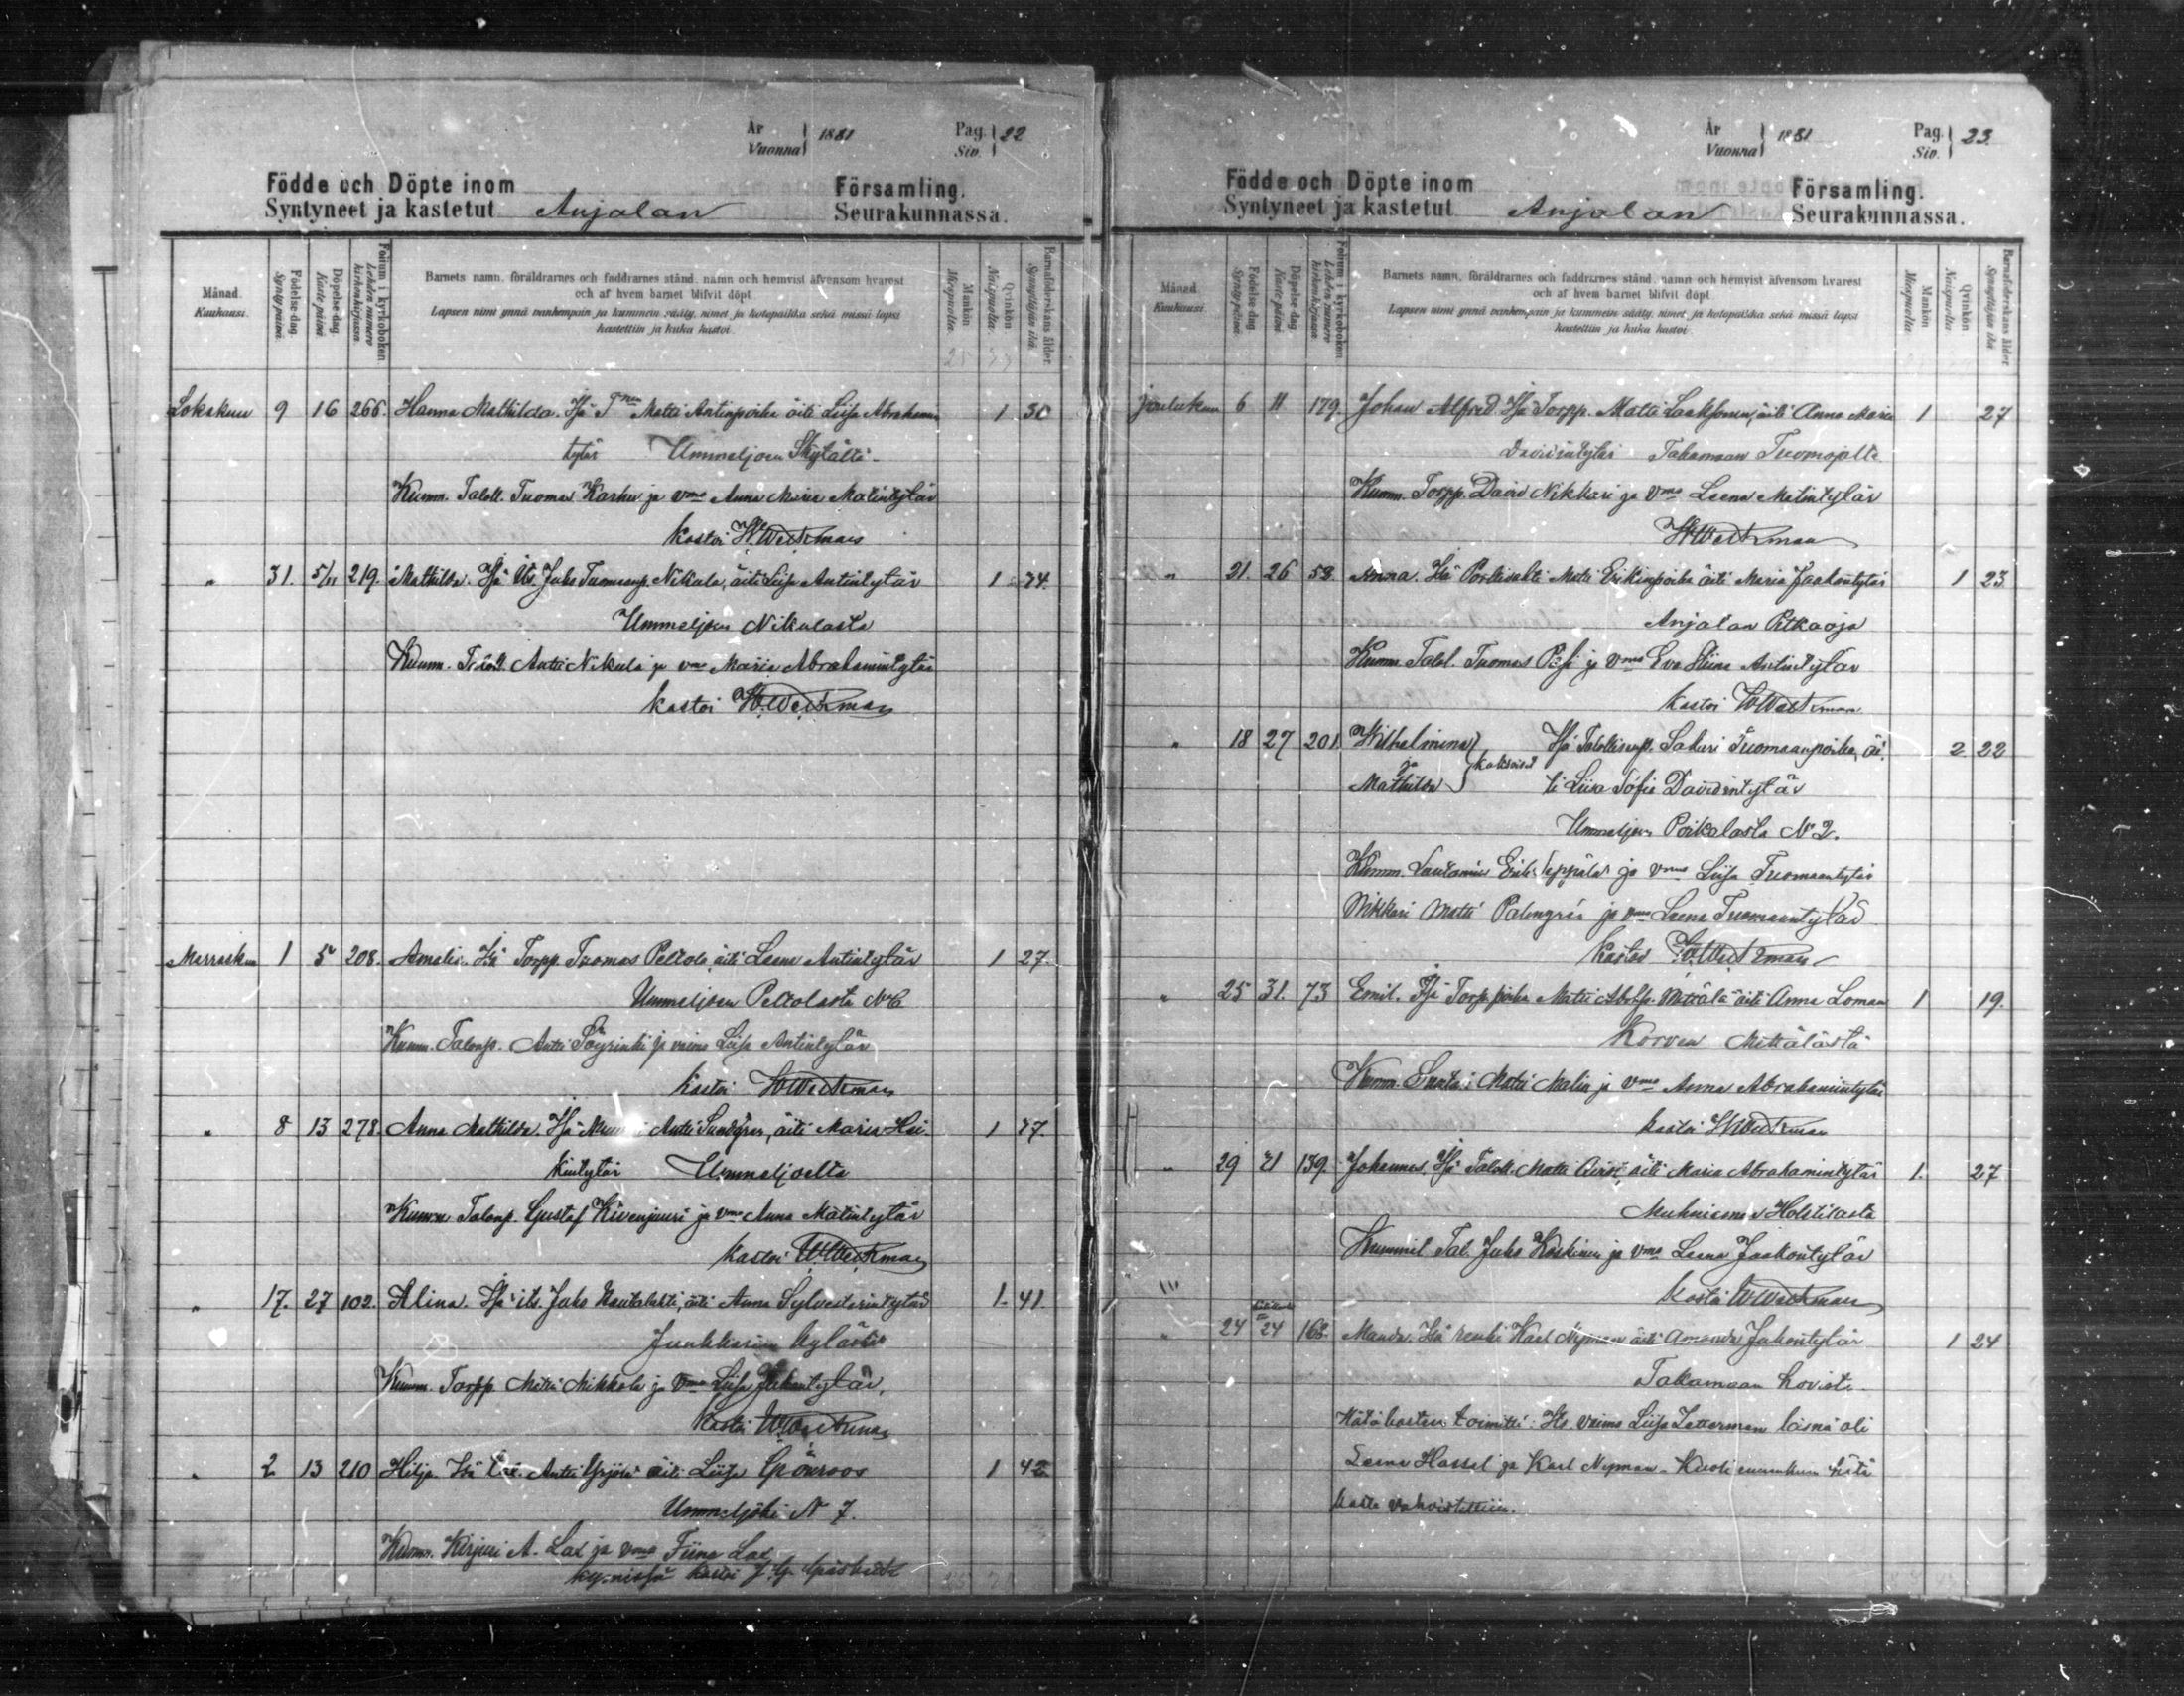 År
Vuonna } 1881
Pag.
Siv. } 22
Födde och Döpte inom Församling.
Syntyneet ja kastetut Anjalan Seurakunnassa.
Månad.
Kuukausi.
Födelse-dag.
Syntypäivä.
Döpelse-dag.
Kaste päivä
Folium i kyrkoboken
Lehden numero kirkonkirjassa.
Barnets namn, föräldrarnes och faddrarnes stånd, namn och hemvist äfvensom hvarest
och af hvem barnet blifvit döpt.
Lapsen nimi ynnä vanhempain ja kummein sääty, nimet ja kotopaikka sekä missä lapsi
kastettiin ja kuka kastoi.
Mankön
Miespuolia.
Qvinkön
Naispuolia.
Barnaföderskans ålder.
Synnyttäjän ikä.
Lokakuu 9 16 266. Hanna Mathilda. Isä Matti Antinpoika äiti Liisa Abraham 1 30
tytär Ummeljoen Skytältä
Kumm. Talell. Tuomas Karhu ja vmo Anna Maria Matintytär
kastoi W. Weckman
" 31. 5/11 219. Mathilda. Isä Its. Juho Tuomasp. Nikula, äiti Liisa Antintytär 1 34.
Ummeljoen Nikulasta
Kumm. Talell. Antti Nikula ja vmo Maria Abrahamintytär
kastoi W. Weckman
Marrask 1 5 208. Amalia. Isä Torpp. Tuomas Peltola, äiti Leena Antintytär 1 27.
Ummeljoen Peltolasta
Kumm. Talonp. Antti Söyrinki ja vaimo Liisa Antintytär
kastoi W. Weckman
" 8 13 278. Anna Mathilda. Isä Antti Sundgren, äiti Maria Hei- 1 37.
kintytär Ummeljoelta
Kumm Talonp. Gustaf Kivenjuuri ja vmo Anna Matintytär
kastoi W. Weckman
" 17. 27 102. Alina. Isä its. Juho Rautalahti, äiti Anna Sylvesterintytär 1. 41
Junkkarin kylästä
Kumm. Torpp. Matti Mikkola ja vmo Liisa Juhontytär,
kastoi W. Weckman
" 2 13 210 Hilja. Isä Antti Yrjölä äiti Liisa Grönroos 1 42
Ummeljoki N 7.
Kumm. Kirjuri A. Lax ja vmo Fiina Lax
kastoi J. G.
År
Vuonna } 1881
Pag.
Siv. } 23.
Födde och Döpte inom Församling.
Syntyneet ja kastetut Anjalan Seurakunnassa.
Månad.
Kuukausi.
Födelse-dag.
Syntypäivä.
Döpelse-dag.
Kaste päivä
Folium i kyrkoboken
Lehden numero kirkonkirjassa.
Barnets namn, föräldrarnes och faddrarnes stånd, namn och hemvist äfvensom hvarest
och af hvem barnet blifvit döpt.
Lapsen nimi ynnä vanhempain ja kummein sääty, nimet ja kotopaikka sekä missä lapsi
kastettiin ja kuka kastoi.
Mankön
Miespuolia.
Qvinkön
Naispuolia.
Barnaföderskans ålder.
Synnyttäjän ikä.
Joulukuu 6 11 179. Johan Alfred. Isä Torpp. Matti Laaksonen, äiti Anna Maria 1 27
Davidintytär Takamaan Tuomojalta
Kumm. Torpp. David Nikkari ja vmo Leena Matintytär
W. Weckman
" 21. 26 58 Anna. Isä Matti Erikinpoika äiti Maria Jaakontytär 1 23
Anjalan Pitkäoja
Kumm Talol. Tuomas Pasi ja vmo Eva Stiina Antintytär
kastoi W. Weckman
" 18 27 201. Wilhelmina } kaksoiset Isä Talollisenp. Sakari Tuomaanpoika, äi- 2 22
ja
Mathilda ti Liisa Sofia Davidintytär
Ummeljoen Poikalasta N 2.
Kumm. Lautamies Erik Seppälä ja vmo Liisa Tuomaantytär
Nikkari Matti Palmgrén ja vmo Leena Tuomaantytär
Kastoi W. Weckman
" 25 31. 73 Emil. Isä Torp. poika Matti Mattälä äiti Anna Loman 1 19.
Korven Mättälästä
Kumm. Matti Malin ja vmo Anna Abrahamintytär
kastoi W. Weckman
" 29 31 139. Johannes. Isä Taloll. Matti äiti Maria Abrahamintytär 1. 27
Muhniemen Holstilasta
Kummit Tal. Juho Koskinen ja vmo Leena Jaakontytär
kastoi W. Weckman
" 24 24 168. Manda. Isä renki Karl Nyman äiti Amanda Juhontytär 1 24
Takamaan hovista
Hätäkasteen toimitti: Its. vaimo Liisa Zetterman läsnä oli
Leena Hassel ja Karl Nyman. Kuoli ennenkun hätä
kaste vahvistettiin.